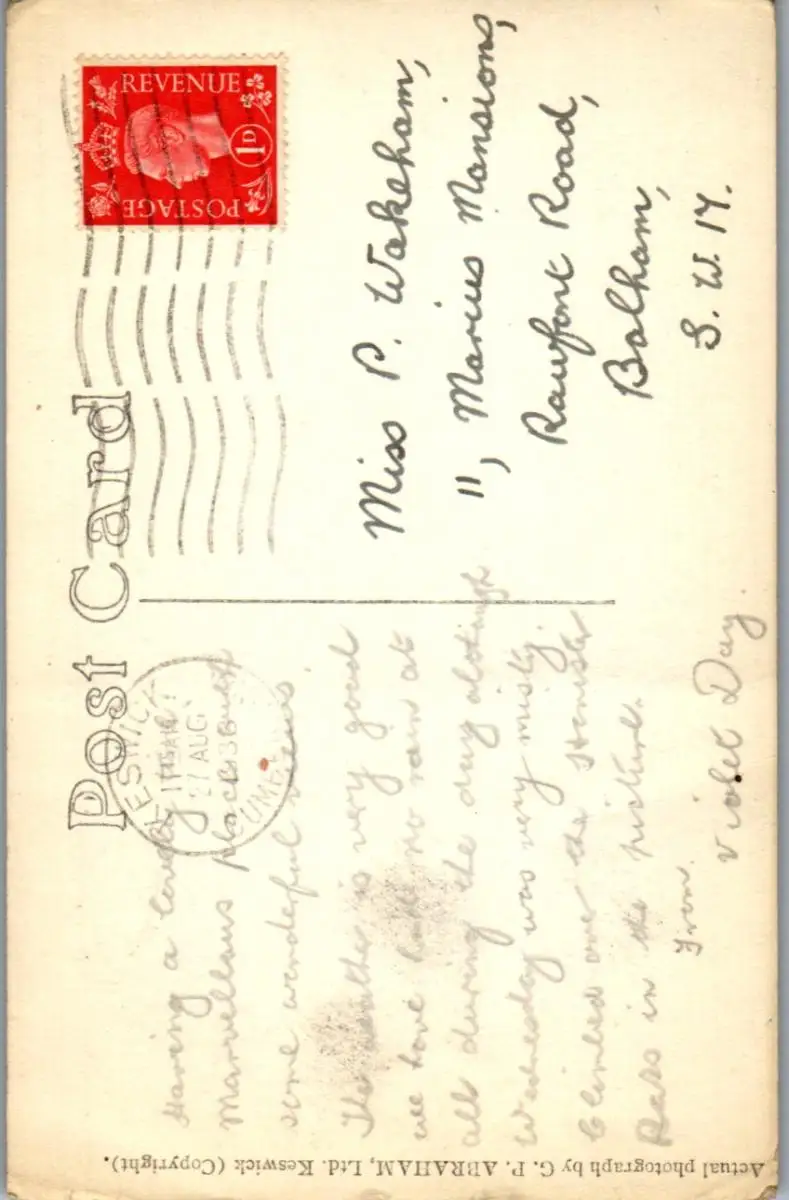 Post Card
REVENUE
1D
POSTAGE
KESWICK
27 AUG
38
CUMB
Having a lovely time
Marvellous place
some wonderful views
The weather is very good
we have had no rain at
all during the day although
Wednesday was very misty.
Climbed over the
Pass in the picture.
From
Violet Day
Miss P. Wakeham,
11, Marius Mansions,
Rowfant Road,
Balham,
S. W. 17.
Actual photograph by G. P. ABRAHAM, Ltd. Keswick (Copyright).